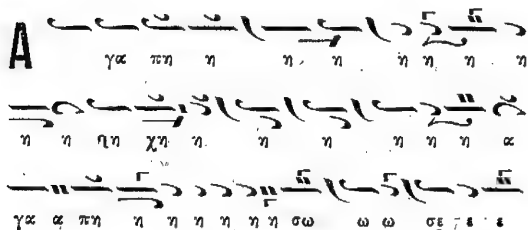 Α γα πη η η η η η η η
η η ηη χη η η η η η η α
γα α πη η η η η η η σω ω ω σε ε ε